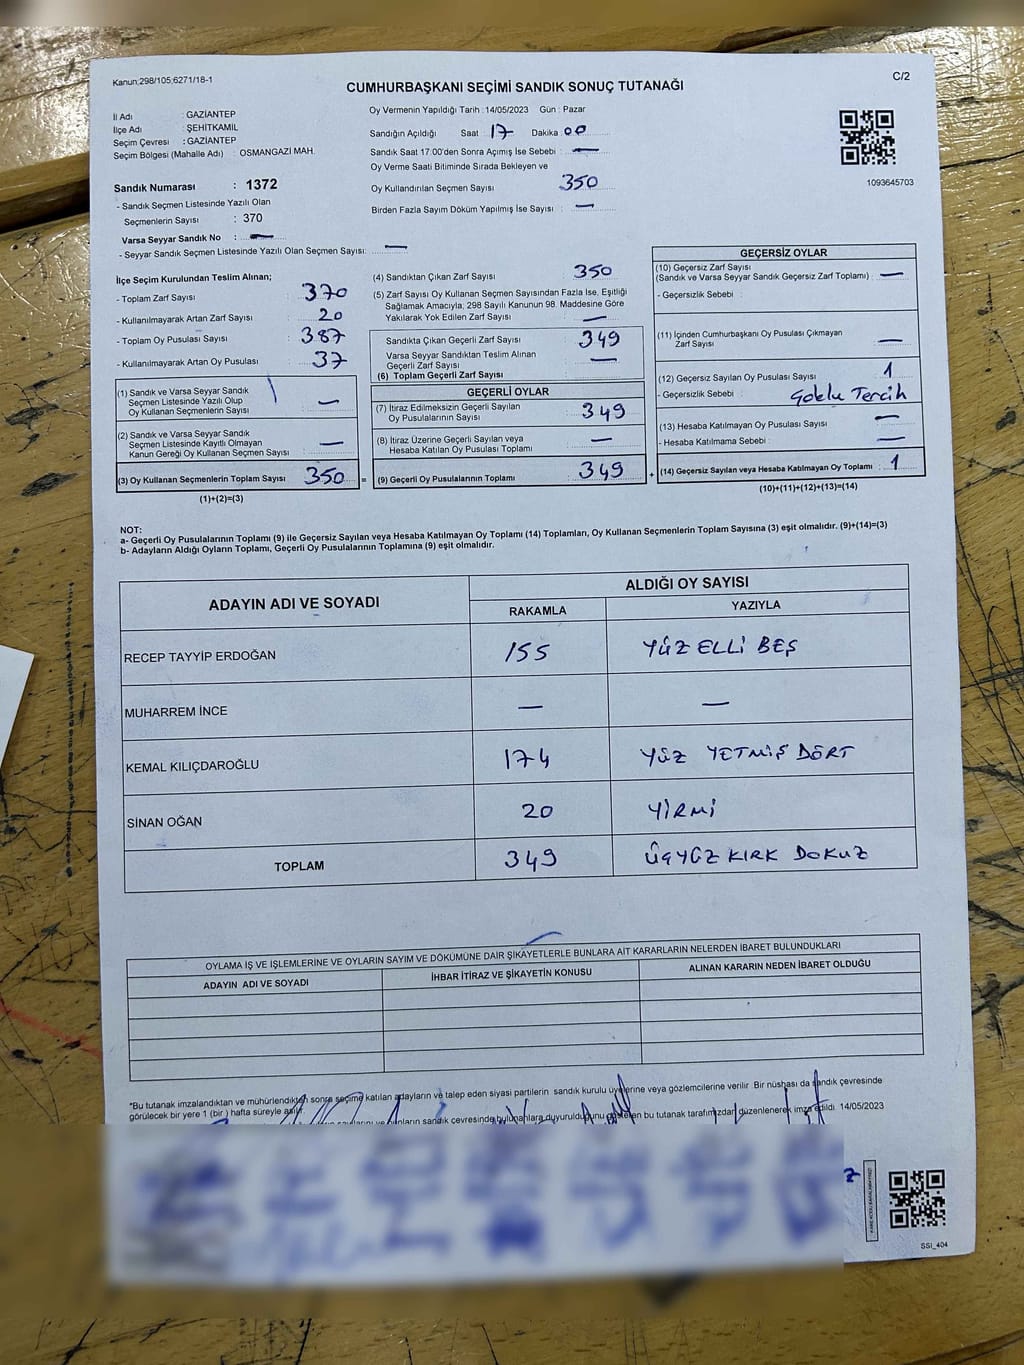 Kanun;298/105;6271/18-1
C/2
CUMHURBAŞKANI SEÇİMİ SANDIK SONUÇ TUTANAĞI
İl Adı : GAZİANTEP
İlçe Adı : ŞEHİTKAMİL
Seçim Çevresi : GAZİANTEP
Seçim Bölgesi (Mahalle Adı) : OSMANGAZİ MAH.
Sandık Numarası : 1372
- Sandık Seçmen Listesinde Yazılı Olan
Seçmenlerin Sayısı : 370
Varsa Seyyar Sandık No : —
- Seyyar Sandık Seçmen Listesinde Yazılı Olan Seçmen Sayısı: —
Oy Vermenin Yapıldığı Tarih :14/05/2023 Gün : Pazar
Sandığın Açıldığı Saat 17 Dakika 00
Sandık Saat 17:00'den Sonra Açımış İse Sebebi : —
Oy Verme Saati Bitiminde Sırada Bekleyen ve
Oy Kullandırılan Seçmen Sayısı 350
Birden Fazla Sayım Döküm Yapılmış İse Sayısı : —
1093645703
İlçe Seçim Kurulundan Teslim Alınan;
- Toplam Zarf Sayısı : 370
- Kullanılmayarak Artan Zarf Sayısı : 20
- Toplam Oy Pusulası Sayısı : 387
- Kullanılmayarak Artan Oy Pusulası : 37
(1) Sandık ve Varsa Seyyar Sandık
Seçmen Listesinde Yazılı Olup
Oy Kullanan Seçmenlerin Sayısı : —
(2) Sandık ve Varsa Seyyar Sandık
Seçmen Listesinde Kayıtlı Olmayan
Kanun Gereği Oy Kullanan Seçmen Sayısı : —
(3) Oy Kullanan Seçmenlerin Toplam Sayısı : 350 =
(1)+(2)=(3)
(4) Sandıktan Çıkan Zarf Sayısı : 350
(5) Zarf Sayısı Oy Kullanan Seçmen Sayısından Fazla İse, Eşitliği
Sağlamak Amacıyla, 298 Sayılı Kanunun 98. Maddesine Göre
Yakılarak Yok Edilen Zarf Sayısı : —
Sandıkta Çıkan Geçerli Zarf Sayısı : 349
Varsa Seyyar Sandıktan Teslim Alınan
Geçerli Zarf Sayısı : —
(6) Toplam Geçerli Zarf Sayısı
GEÇERLİ OYLAR
(7) İtiraz Edilmeksizin Geçerli Sayılan
Oy Pusulalarının Sayısı : 349
(8) İtiraz Üzerine Geçerli Sayılan veya
Hesaba Katılan Oy Pusulası Toplamı : —
(9) Geçerli Oy Pusulalarının Toplamı : 349 +
GEÇERSİZ OYLAR
(10) Geçersiz Zarf Sayısı
(Sandık ve Varsa Seyyar Sandık Geçersiz Zarf Toplamı) : —
- Geçersizlik Sebebi :
(11) İçinden Cumhurbaşkanı Oy Pusulası Çıkmayan
Zarf Sayısı : —
(12) Geçersiz Sayılan Oy Pusulası Sayısı : 1
- Geçersizlik Sebebi : Çoklu Tercih
(13) Hesaba Katılmayan Oy Pusulası Sayısı : —
- Hesaba Katılmama Sebebi : —
(14) Geçersiz Sayılan veya Hesaba Katılmayan Oy Toplamı : 1
(10)+(11)+(12)+(13)=(14)
NOT:
a- Geçerli Oy Pusulalarının Toplamı (9) ile Geçersiz Sayılan veya Hesaba Katılmayan Oy Toplamı (14) Toplamları, Oy Kullanan Seçmenlerin Toplam Sayısına (3) eşit olmalıdır. (9)+(14)=(3)
b- Adayların Aldığı Oyların Toplamı, Geçerli Oy Pusulalarının Toplamına (9) eşit olmalıdır.
ADAYIN ADI VE SOYADI
ALDIĞI OY SAYISI
RAKAMLA YAZIYLA
RECEP TAYYİP ERDOĞAN 155 YÜZ ELLİ BEŞ
MUHARREM İNCE — —
KEMAL KILIÇDAROĞLU 174 YÜZ YETMİŞ DÖRT
SİNAN OĞAN 20 YİRMİ
TOPLAM 349 ÜÇYÜZ KIRK DOKUZ
OYLAMA İŞ VE İŞLEMLERİNE VE OYLARIN SAYIM VE DÖKÜMÜNE DAİR ŞİKAYETLERLE BUNLARA AİT KARARLARIN NELERDEN İBARET BULUNDUKLARI
ADAYIN ADI VE SOYADI İHBAR İTİRAZ VE ŞİKAYETİN KONUSU ALINAN KARARIN NEDEN İBARET OLDUĞU
*Bu tutanak imzalandıktan ve mühürlendikten sonra seçime katılan adayların ve talep eden siyasi partilerin sandık kurulu üyelerine veya gözlemcilerine verilir .Bir nüshası da sandık çevresinde
görülecek bir yere 1 (bir ) hafta süreyle asılır.
sandık çevresinde bulunanlara duyurulduğunu gösteren bu tutanak tarafımızdan düzenlenerek imza edildi. 14/05/2023
SSI_404